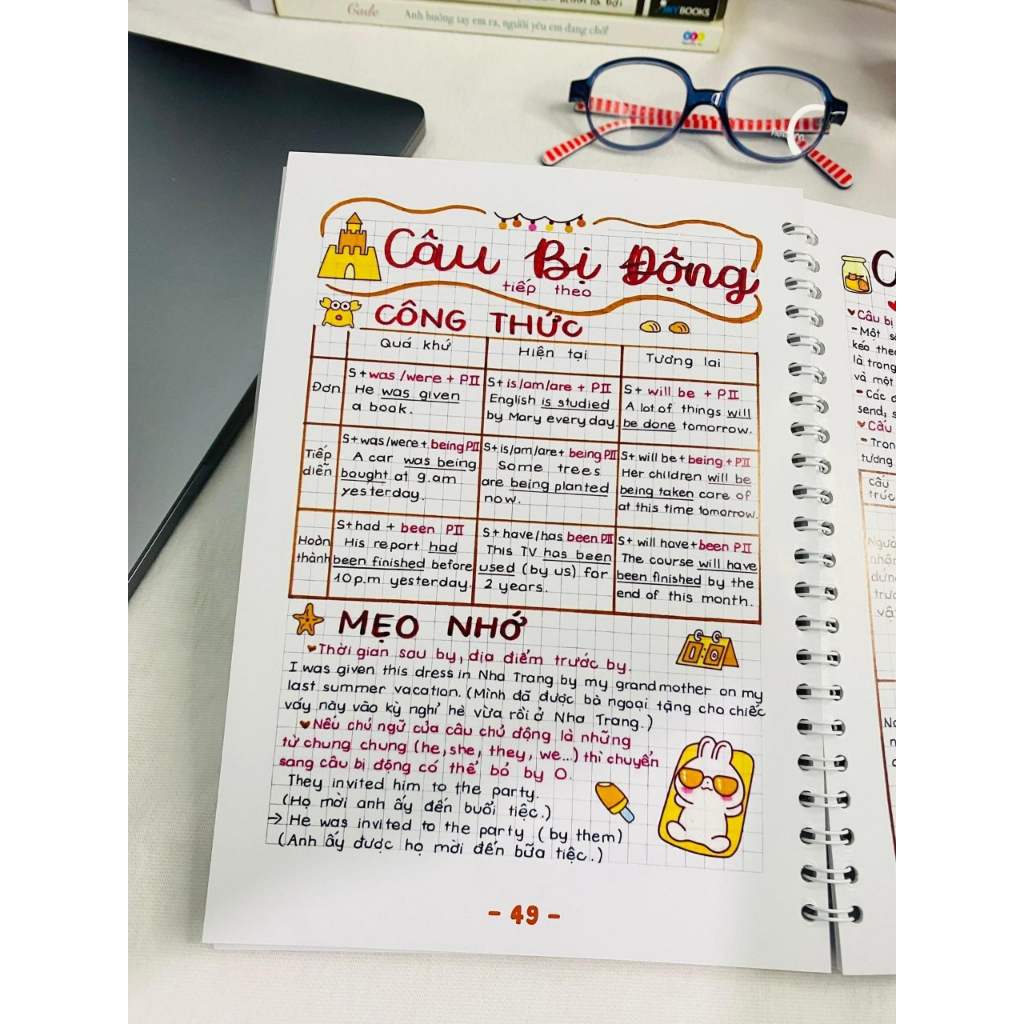 Anh buông tay em ra, người yêu em đang chờ!
BOOKS
Câu Bị Động
tiếp theo
CÔNG THỨC
Quá khứ
Hiện tại
Tương lai
Đơn
S+was/were + PII
He was given
a book.
S+is/am/are + PII
English is studied
by Mary every day.
S+ will be + PII
A lot of things will
be done tomorrow.
Tiếp
diễn
S+was/were+being PII
A car was being
bought at 9.am
yesterday.
S+is/am/are+ being PII
Some trees
are being planted
now.
S+ will be+being+PII
Her children will be
being taken care of
at this time tomorrow.
Hoàn
thành
S+had + been PII
His report had
been finished before
10p.m yesterday.
S+ have/has been PII
This TV has been
used (by us) for
2 years.
S+ will have+been PII
The course will have
been finished by the
end of this month.
MẸO NHỚ
Thời gian sau by, địa điểm trước by.
I was given this dress in Nha Trang by my grandmother on my
last summer vacation. (Mình đã được bà ngoại tặng cho chiếc
váy này vào kỳ nghỉ hè vừa rồi ở Nha Trang.)
Nếu chủ ngữ của câu chủ động là những
từ chung chung (he, she, they, we...) thì chuyển
sang câu bị động có thể bỏ by O.
They invited him to the party.
(Họ mời anh ấy đến buổi tiệc.)
→ He was invited to the party (by them)
(Anh ấy được họ mời đến bữa tiệc.)
- 49 -
Câu bị
- Một
kéo
là trong
và một
- Các
send,
Cấu
- Tron
tương
Cấu
trúc